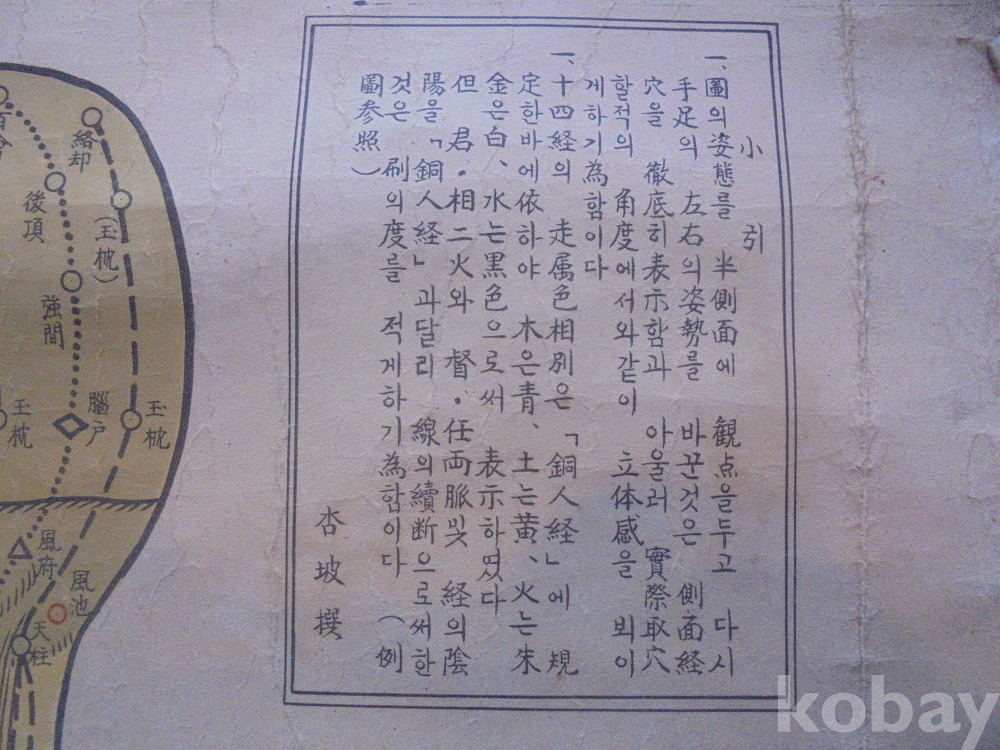 小引
一、圖의姿態를 半側面에 観点을두고 다시
手足의 左右의姿勢를 바꾼것은 側面経
穴을 徹底히表示함과 아울러 實際取穴
할적의 角度에서와같이 立体感을 뵈이
게하기為함이다
一、十四経의 走属色相別은「銅人経」에 規
定한바에依하야 木은青、土는黄、火는朱
金은白、水는黒色으로써 表示하였다
但 君・相二火와 督・任両脈및 経의陰
陽을「銅人経」과달리 線의續断으로써한
것은 刷의度를 적게하기為함이다 (例
圖参照)
杏坡撰
絡却
後頂
(玉枕)
強間
腦戸
玉枕
玉枕
風府
風池
天柱
kobay